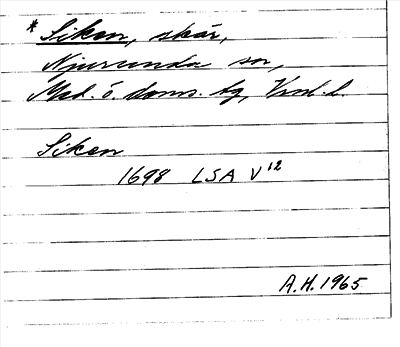 * Siken, skär,
Njurunda sn,
Med. ö. doms. tg, Vnl. l.
Siken
1698 LSA V 12
A.H. 1965